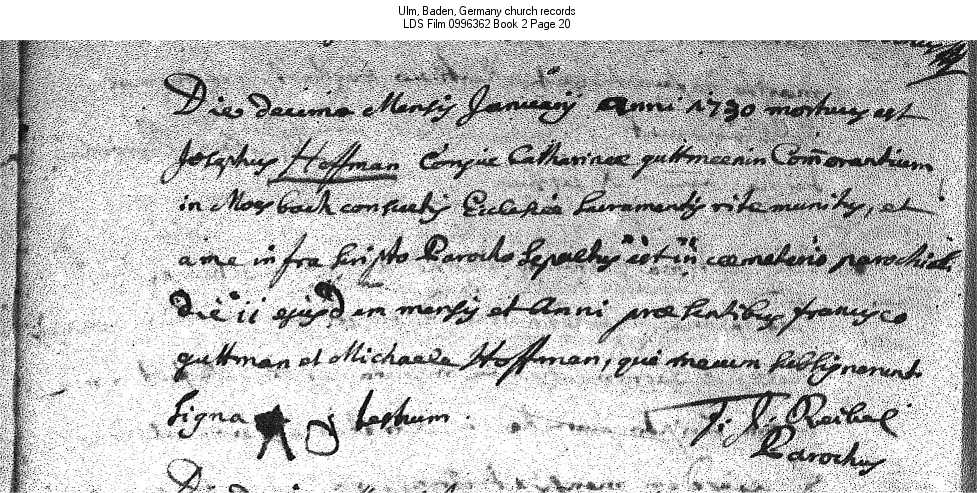 Ulm, Baden, Germany church records
LDS Film 0996362 Book 2 Page 20
Die decima Mensis Januarij Anni 1730 mortuus est
Josephus Hoffman Conjux Catharinae guttmennin Com̄orantium
in Mosbach consuetis Ecclesiae sacramentis rite munitus, et
a me infra scripto Parocho sepultus est in caemeterio parochiali
die ii ejusdem mensis et Anni praesentibus francisco
guttman et Michaele Hoffman, qui mecum subsignerunt
Signa testium.
J. J. Reibel
Parochus